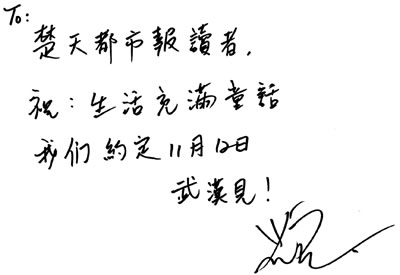 To:
楚天都市報讀者,
祝:生活充滿童話
我们約定11月12日
武漢見!